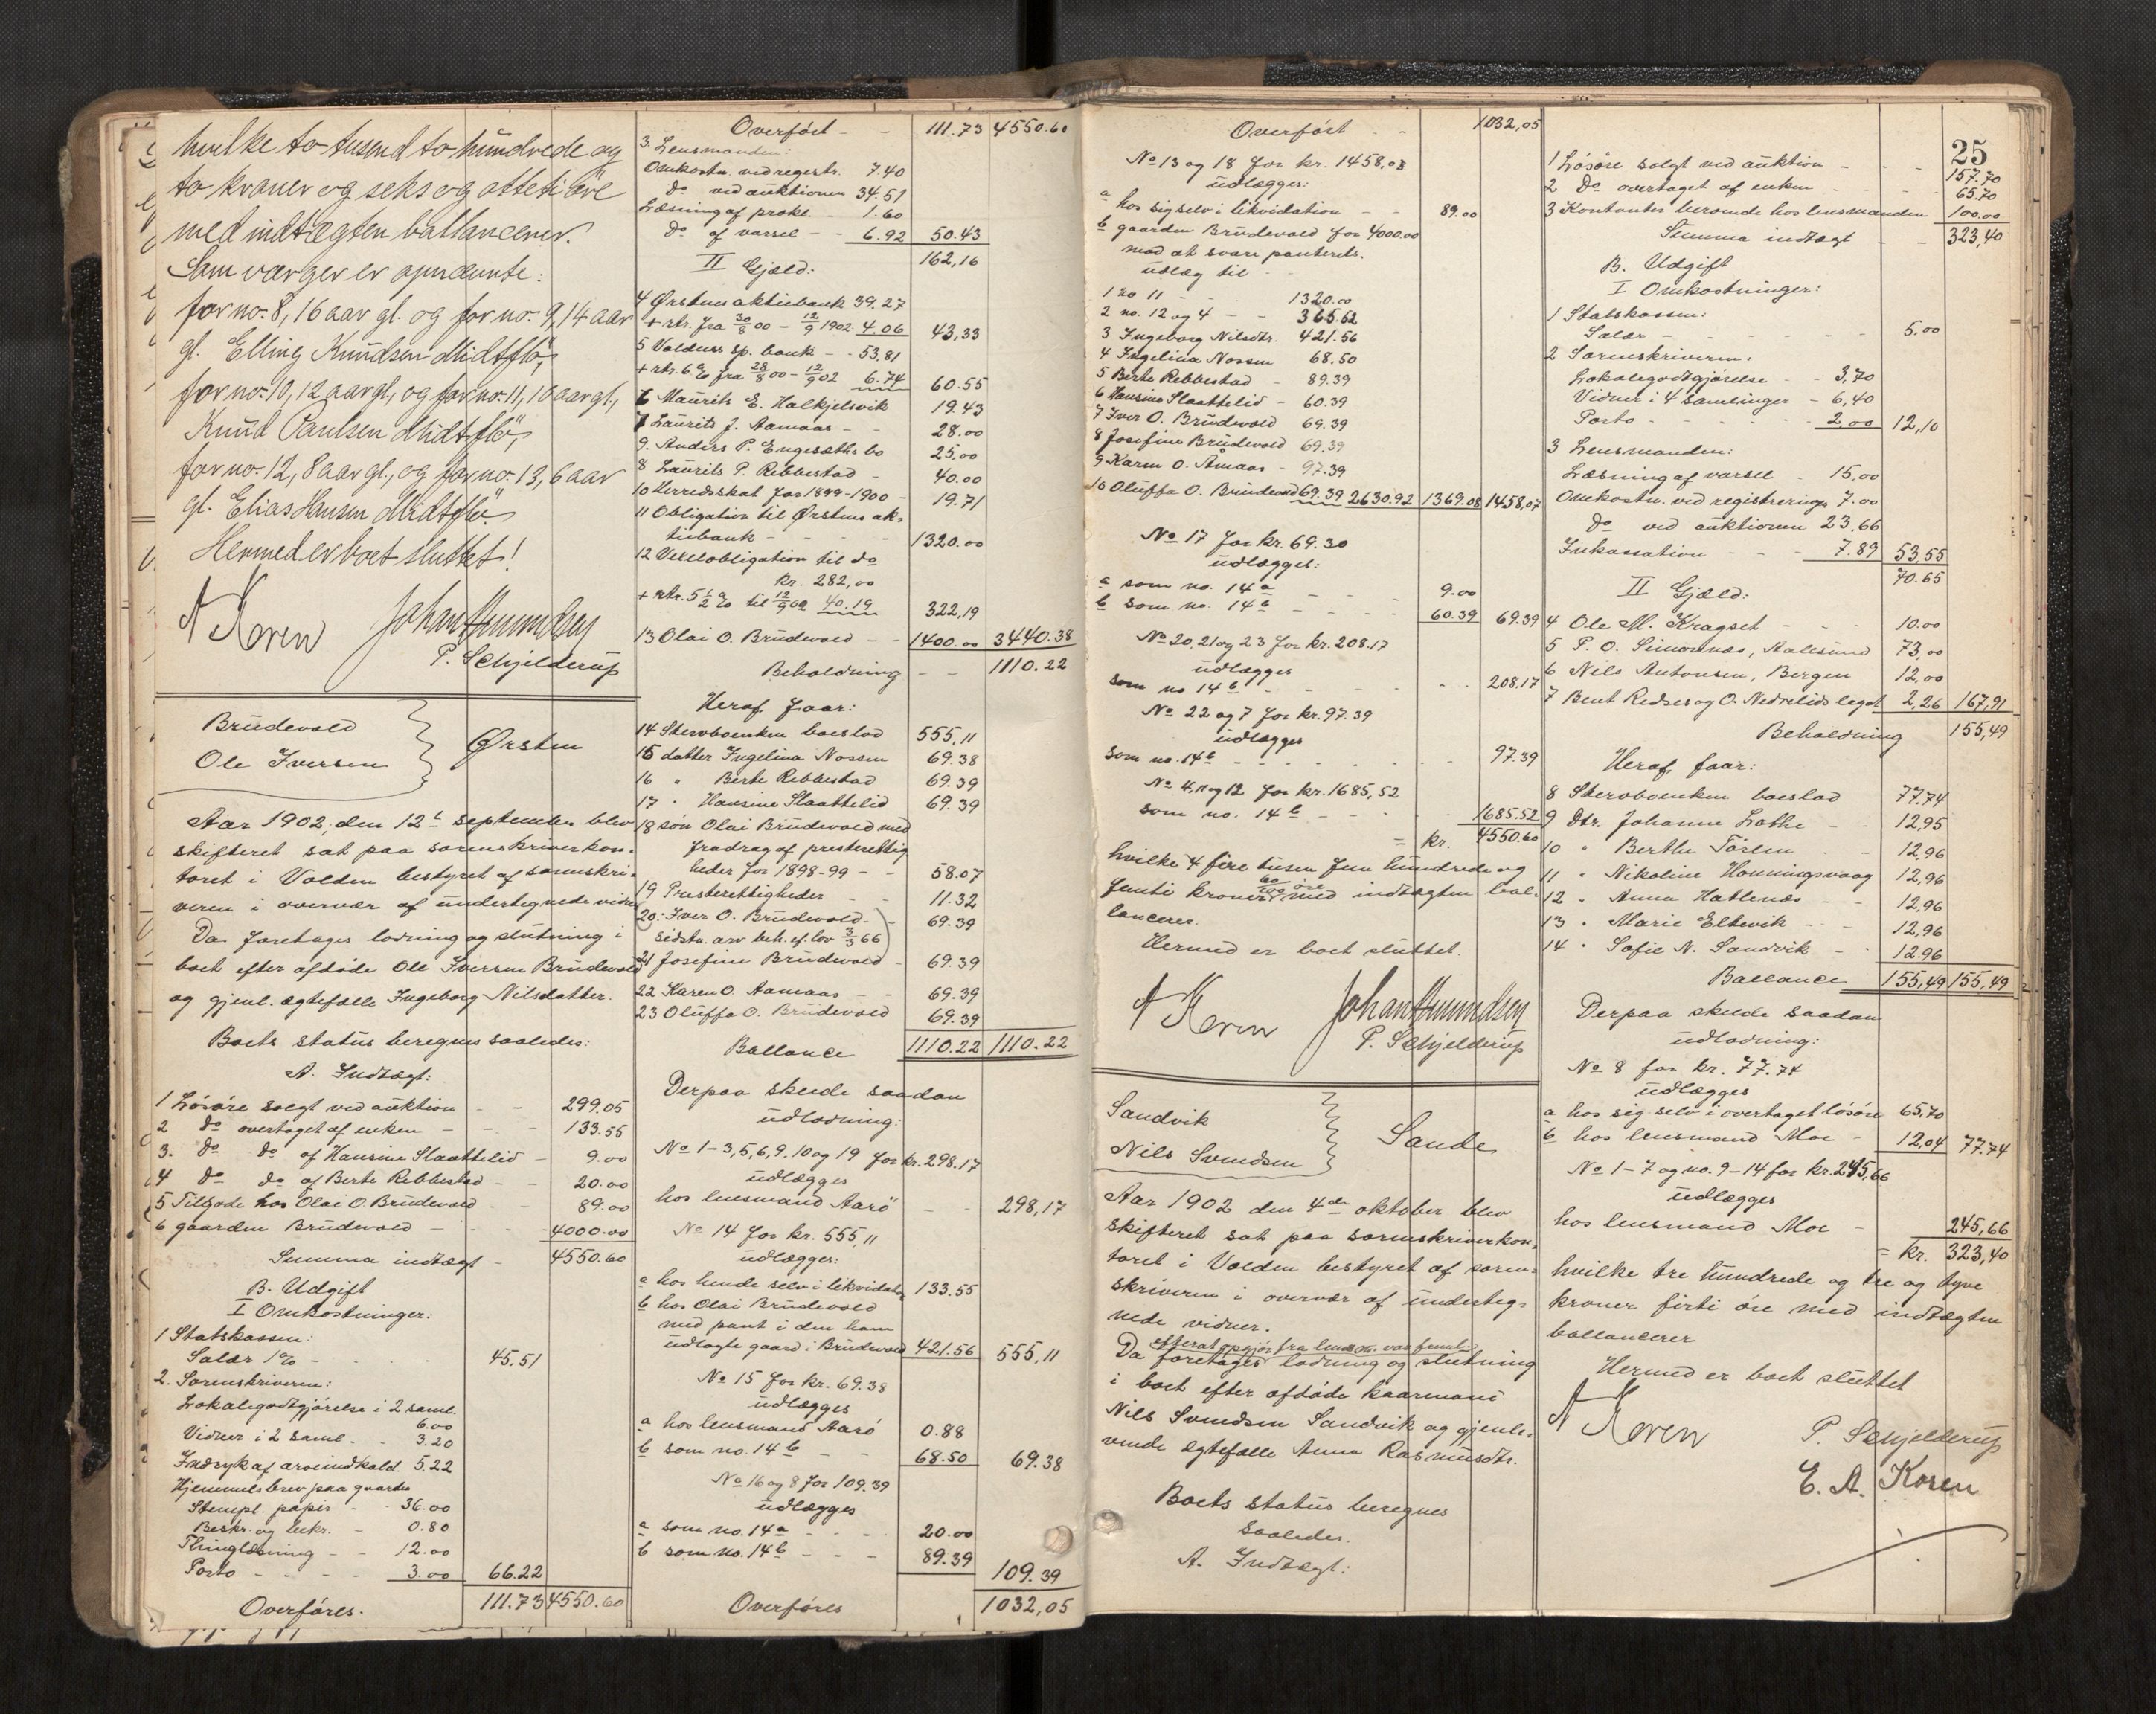 hvilke to tusend to hundrede og
to kroner og seks og otteti øre
med indtægten ballancerer.
Som værger er opnævnte:
for no. 8, 16 aar gl. og for no. 9, 14 aar
gl. Elling Knudsen Midtflø,
for no. 10, 12 aar gl, og for no. 11, 10 aar gl,
Knud Paulsen Midtflø,
for no. 12, 8 aar gl, og for no. 13, 6 aar
gl. Elias Hansen Midtflø.
Hermed er boet sluttet!
A Koren Johan Amundsen
P. Schjelderup
Brudevold
Ole Iversen
Ørsten
Aar 1902, den 12t september blev
skifteret sat paa sorenskriverkon-
toret i Volden bestyret af sorenskri-
veren i overvær af undertegnede vidner
Da foretages lodning og slutning i
boet efter afdøde Ole Iversen Brudevold
og gjenl. ægtefælle Ingeborg Nilsdatter.
Boets status beregnes saaledes:
A. Indtægt:
1 Løsøre solgt ved auktion - - 299.05
2 do overtaget af enken - - 133.55
3. do do af Hansine Slaattelid - 9.00
4 do do af Berte Ribbestad - - 20.00
5 Tilgode hos Olai O. Brudevold - 89.00
6 gaarden Brudevold - - 4000.00
Summa indtægt - 4550.60
B. Udgift
I Omkostninger:
1 Statskassen:
Salær 1% - - 45.51
2. Sorenskriveren:
Lokalegodtgjørelse i 2 saml.
6.00
Vidner i 2 saml. - 3.20
Indryk af arveindkald. 5.22
Hjemmelsbrev paa gaarden
Stempl. papir - - 36.00
Beskr. og bekr. - 0.80
Thinglæsning - - 12.00
Porto - - - - 3.00 66.22
Overføres. 111.73 4550.60
Overført - - 111.73 4550.60
3. Lensmanden:
Omkostn. ved registr. 7.40
do ved auktionen 34.51
Læsning af prokl. - 1.60
do af varsel - - 6.92 50.43
162,16
II Gjæld:
4 Ørstens aktiebank 39.27
+ rtr. fra 30/8 00 - 12/9 1902 4.06 43,33
5 Voldens sp. bank - - 53,81
+ rtr. 6% fra 28/8 00 - 12/9 02 6.74 60.55
6 Maurits E. Halkjelsvik 19.43
7 Laurits J. Aamaas - - 28.00
9. Anders P. Engesæths bo 25,00
8 Laurits P. Ribbestad - 40.00
10 Herredsskat for 1899-1900 - 19.71
11 Obligation til Ørstens ak-
tiebank - - - - 1320.00
12 Vexelobligation til do
kr. 282,00
+ rtr. 5 1/2 % til 12/9 02 40.19 322,19
13 Olai O. Brudevold - - 1400.00 3440.38
Beholdning - - 1110.22
Heraf faar:
14 Stervboenken boeslod 555,11
15 datter Ingelina Nossen 69.38
16 " Berte Ribbestad 69.39
17 " Hansine Slaattelid 69.39
18 søn Olai Brudevold med
fradrag af presterettig-
heder for 1898-99 - - 58.07
19 Presterettigheder - - 11.32
20: Iver O. Brudevold - 69.39
sidstn. arv beh. ef. lov 3/3 66
21 Josefine Brudevold - 69.39
22 Karen O. Aamaas - - 69.39
23 Oluffa O. Brudevold 69.39
Ballance 1110.22 1110.22
Derpaa skeede saadan
udlodning:
No 1-3, 5, 6, 9, 10 og 19 for kr. 298.17
udlægges
hos lensmand Aarø - - 298,17
No 14 for kr. 555,11
udlægges:
a hos hende selv i likvidation 133.55
b hos Olai Brudevold
med pant i den ham
udlagte gaard i Brudevold 421.56 555,11
No 15 for kr. 69.38
udlægges
a hos lensmand Aarø 0.88
b som no. 14 b - - 68.50 69.38
No 16 og 8 for 109.39
udlægges
a som no. 14 a - - - 20.00
b som no. 14 b - - - 89.39
109.39
Overføres 1032,05
Overført - - 1032,05
No 13 og 18 for kr. 1458,08
udlægges:
a hos sig selv i likvidation - - 89.00
b gaarden Brudevold for 4000.00
mod at svare panterets.
udlæg til -
1 no 11 - - 1320.00
2 no. 12 og 4 - - 365.52
3 Ingeborg Nilsdtr. 421.56
4 Ingelina Nossen 68.50
5 Berte Ribbestad - 89.39
6 Hansine Slaattelid - 60.39
7 Iver O. Brudevold 69.39
8 Josefine Brudevold 69.39
9 Karen O. Åmaas - 97.39
10 Oluffa O. Brudevold 69.39 2630.92 1369.08 1458,07
No 17 for kr. 69.30
udlægges:
a som no. 14 a - - - 9.00
b som no. 14 b - - - 60.39 69.39
No 20, 21 og 23 for kr. 208.17
udlægges
som no 14 b - - - - 208.17
No 22 og 7 for kr. 97.39
udlægges
som no. 14 b - - - - 97.39
No 4, 11 og 12 for kr. 1685,52
som no. 14 b - - - 1685.52
= kr. 4550.60
hvilke 4 fire tusen fem hundrede og
femti kroner 60/100 øre med indtægten bal-
lancerer.
Hermed er boet sluttet.
A Koren Johan Amundsen
P. Schjelderup
Sandvik
Nils Svendsen
Sande
Aar 1902 den 4de oktober blev
skifteret sat paa sorenskriverkon-
toret i Volden bestyret af soren-
skriveren i overvær af underteg-
nede vidner.
efterat opgjør fra lensm. var freml.
Da foretages lodning og slutning
i boet efter afdøde kaarmand
Nils Svendsen Sandvik og gjenle-
vende ægtefælle Anna Rasmusdtr.
Boets status beregnes
saaledes.
A. Indtægt:
25
1 Løsøre solgt ved auktion - - - 157.70
2 Do overtaget af enken - - - 65.70
3 Kontanter beroende hos lensmanden 100.00
Summa indtægt - - 323,40
B. Udgift
I Omkostninger:
1 Statskassen:
Salær - - - - 5.00
2 Sorenskriveren:
Lokalegodtgjørelse - - 3,70
Vidner i 4 samlinger - 6,40
Porto - - - - 2,00 12,10
3 Lensmanden:
Læsning af varsel - 15,00
Omkostn. ved registrering 7.00
do ved auktionen 23,66
Inkassation - - - 7.89 53,55
70.65
II Gjæld:
4 Ole M. Kragset - - - 10.00
5 P. O. Simonnæs, Aalesund 73,00
6 Nils Antonsen, Bergen 12,00
7 Bent Redses og O. Nedrelids legat 2,26 167,91
Beholdning 155,49
Heraf faar:
8 Stervboenken boeslod 77.74
9 Dtr. Johanne Lothe - - 12,95
10 " Berthe Tørlen - - 12,96
11 " Nikoline Honningsvaag 12,96
12 " Anna Hatlenæs - - 12,96
13 " Marie Eltevik - - - 12,96
14 " Sofie N. Sandvik - - 12.96
Ballance 155,49 155,49
Derpaa skeede saadan
udlodning:
No 8 for kr. 77.74
udlægges
a hos sig selv i overtaget løsøre 65,70
b hos lensmand Moe - 12,04 77.74
No 1-7 og no. 9-14 for kr. 245,66
udlægges
hos lensmand Moe - 245,66
= kr. 323,40
hvilke tre hundrede og tre og tyve
kroner firti øre med indtægten
ballancerer
Hermed er boet sluttet
A Koren P. Schjelderup
E. A. Koren